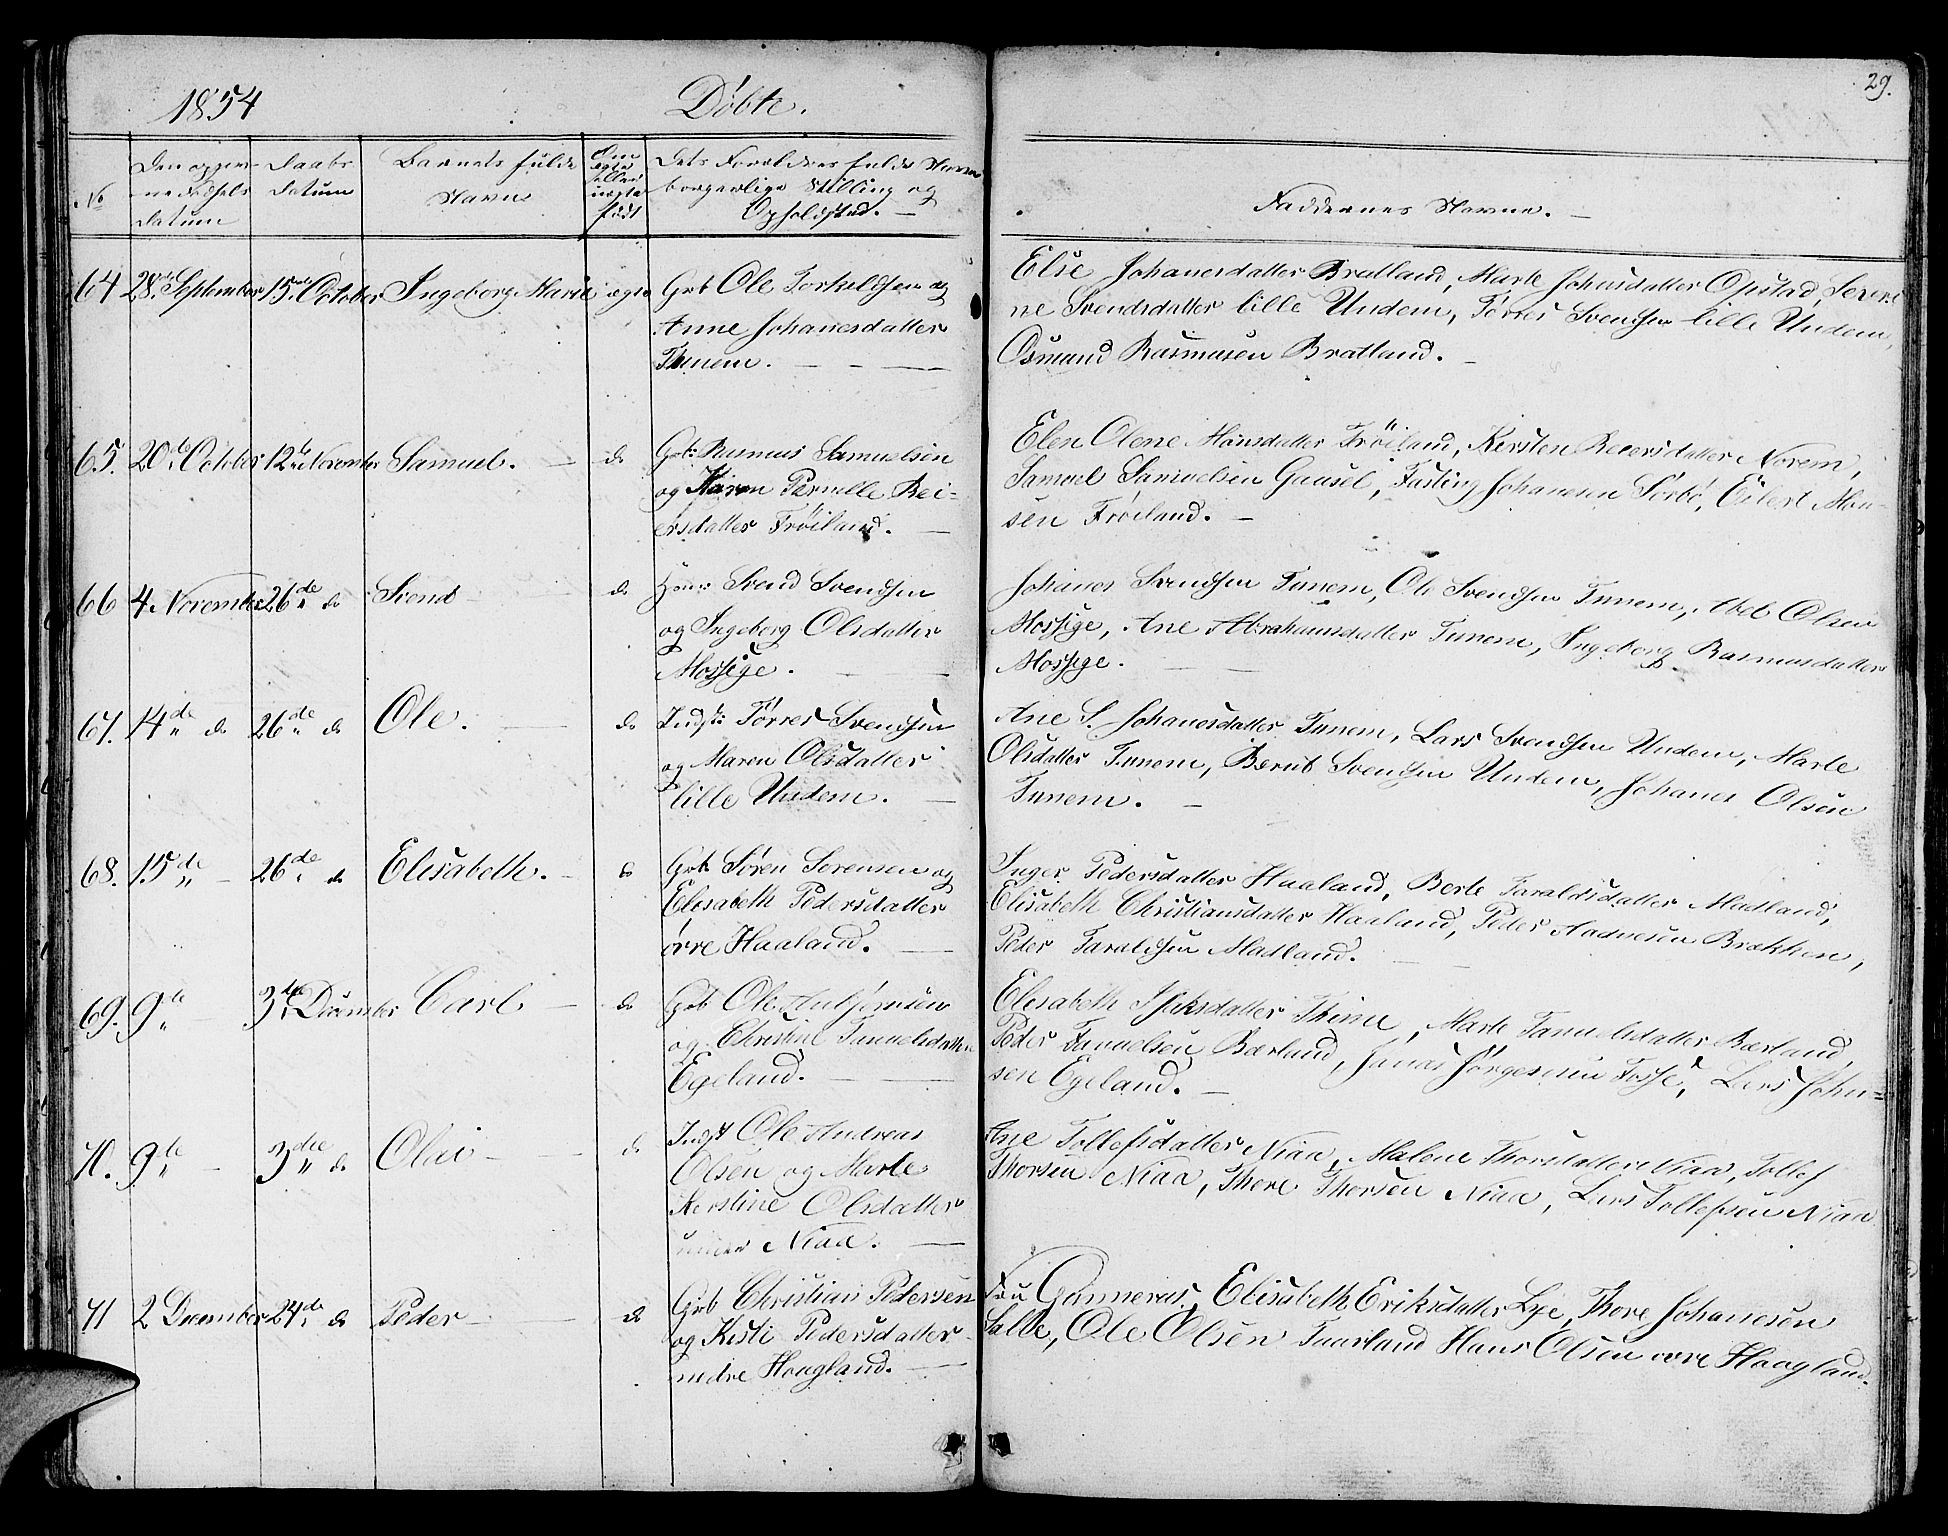 1854
Döbte.
29.
No
Den opgivne Fødsels Datum
Daabs Datum
Barnets fulde Navn
Om ægte eller uægte født
Dets Forældres fulde Navn borgerlige Stilling og Opholdsted. —
Faddernes Navne. —
64 28de September 15de October Ingeborg Marie ægte Grb Ole Torkeldsen og
Anne Johanesdatter
Tunem. — - —
Else Johanesdatter Bratland, Marte Johnsdatter Opstad, Seren
ne Svendsdatter lille Undem, Törres Svendsen lille Undem,
Osmund Rasmusen Bratland. —
65. 20de October 12te November Samuel. — do Grb: Rasmus Samuelsen
og Karen Pernille Bei-
ersdatter Fröiland. —
Elen Olene Monsdatter Fröiland, Kersten Beiersdatter Norem,
Samuel Samuelsen Gausel, Fasting Johanesen Sörbö, Eilert Mon-
sen Fröiland. —
66 4. November 26de do Svend do Svend Svendsen
og Ingeborg Olsdatter
Mossige. —
Johanes Svendsen Tunem, Ole Svendsen Tunem, Abel Olsen
Mossige, Ane Abrahamsdatter Tunem, Ingeborg Rasmusdatter
Mossige. —
67. 14de do 26de do Ole. — do Indst: Törres Svendsen
og Maren Olsdatter
lille Undem. —
Ane S. Johanesdatter Tunem, Lars Svendsen Undem, Marte
Olsdatter Tunem, Berent Svensen Undem, Johanes Olsen
Tunem. —
68. 15de — 26de do Elisabeth. — do Grb Sören Sorensen og
Elisabeth Pedersdatter
övre Haaland. —
Inger Pedersdatter Haaland, Berte Taraldsdatter Madland,
Elisabeth Christiansdatter Haaland, Peder Aadnesen Brækken,
Peder Taraldsen Madland. —
69. 9de — 3die December Carl — do Grb Ole
og Christine Samuelsdatter
Egeland. —
Elisabeth Thime, Marte Samuelsdatter Bærland,
Peder Samuelsen Bærland, Jonas Jörgensen Fosse, Lars John-
sen Egeland. —
70. 9de — 3die do Olai — do Indst Ole Andreas
Olsen og Marte
Kerstine Olsdatter
Niaa. —
Ane Tollefsdatter Niaa, Malene Thorsdatter Niaa, Tollef
Thorsen Niaa, Thore Thorsen Niaa, Lars Tollefsen Niaa
71 2 December 24de do Peder — do Grb Christian Pedersen
og Kisti Pedersdatter
nedre Haagland. —
Fru Gunneras, Elisabeth Eriksdatter Lye, Thore Johanesen
Salte, Ole Olsen Taarland Hans Olsen övre Haagland.